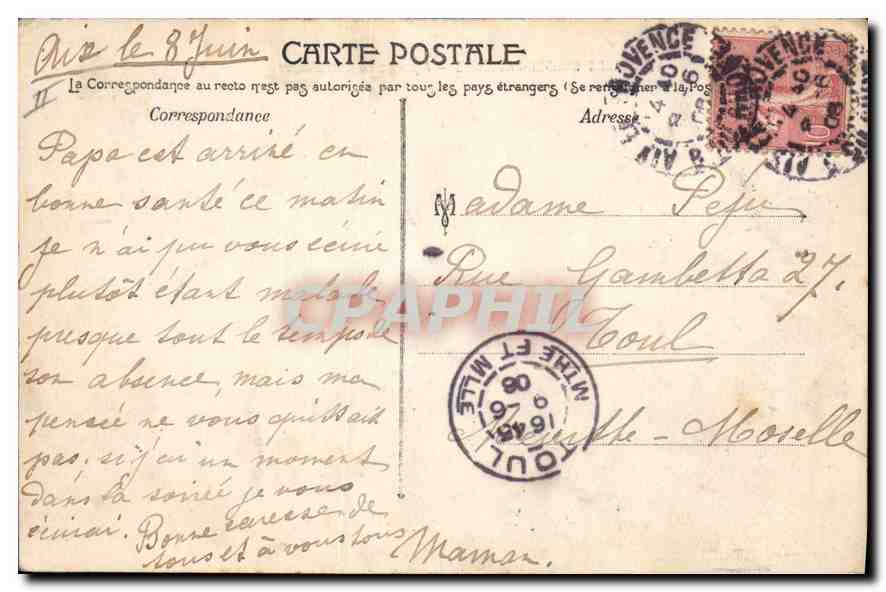 Aix le 8 Juin
II
CARTE POSTALE
La Correspondance au recto n'est pas autorisée par tous les pays étrangers (Se renseigner à la Pos
Correspondance
Adresse
Papa est arrivé en
bonne santé ce matin
je n'ai pu vous écrire
plutôt étant malade
presque tout le temps de
son absence, mais ma
pensée ne vous quittait
pas. si j'ai un moment
dans la soirée je vous
écrirai. Bonne caresse de
tous et à vous tous
Maman.
Madame Peju
Rue Gambetta 27.
Toul
Meurthe-Moselle
CPAPHIL
TOUL
MTHE ET MLLE
16 45
9 6
08
AIX
PROVENCE
8 6
08